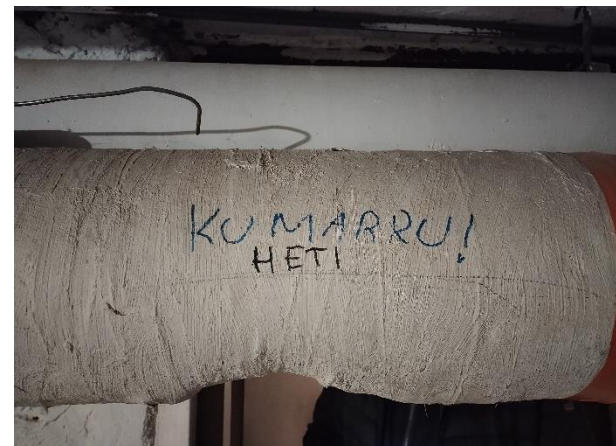 KUMARRU!
HETI